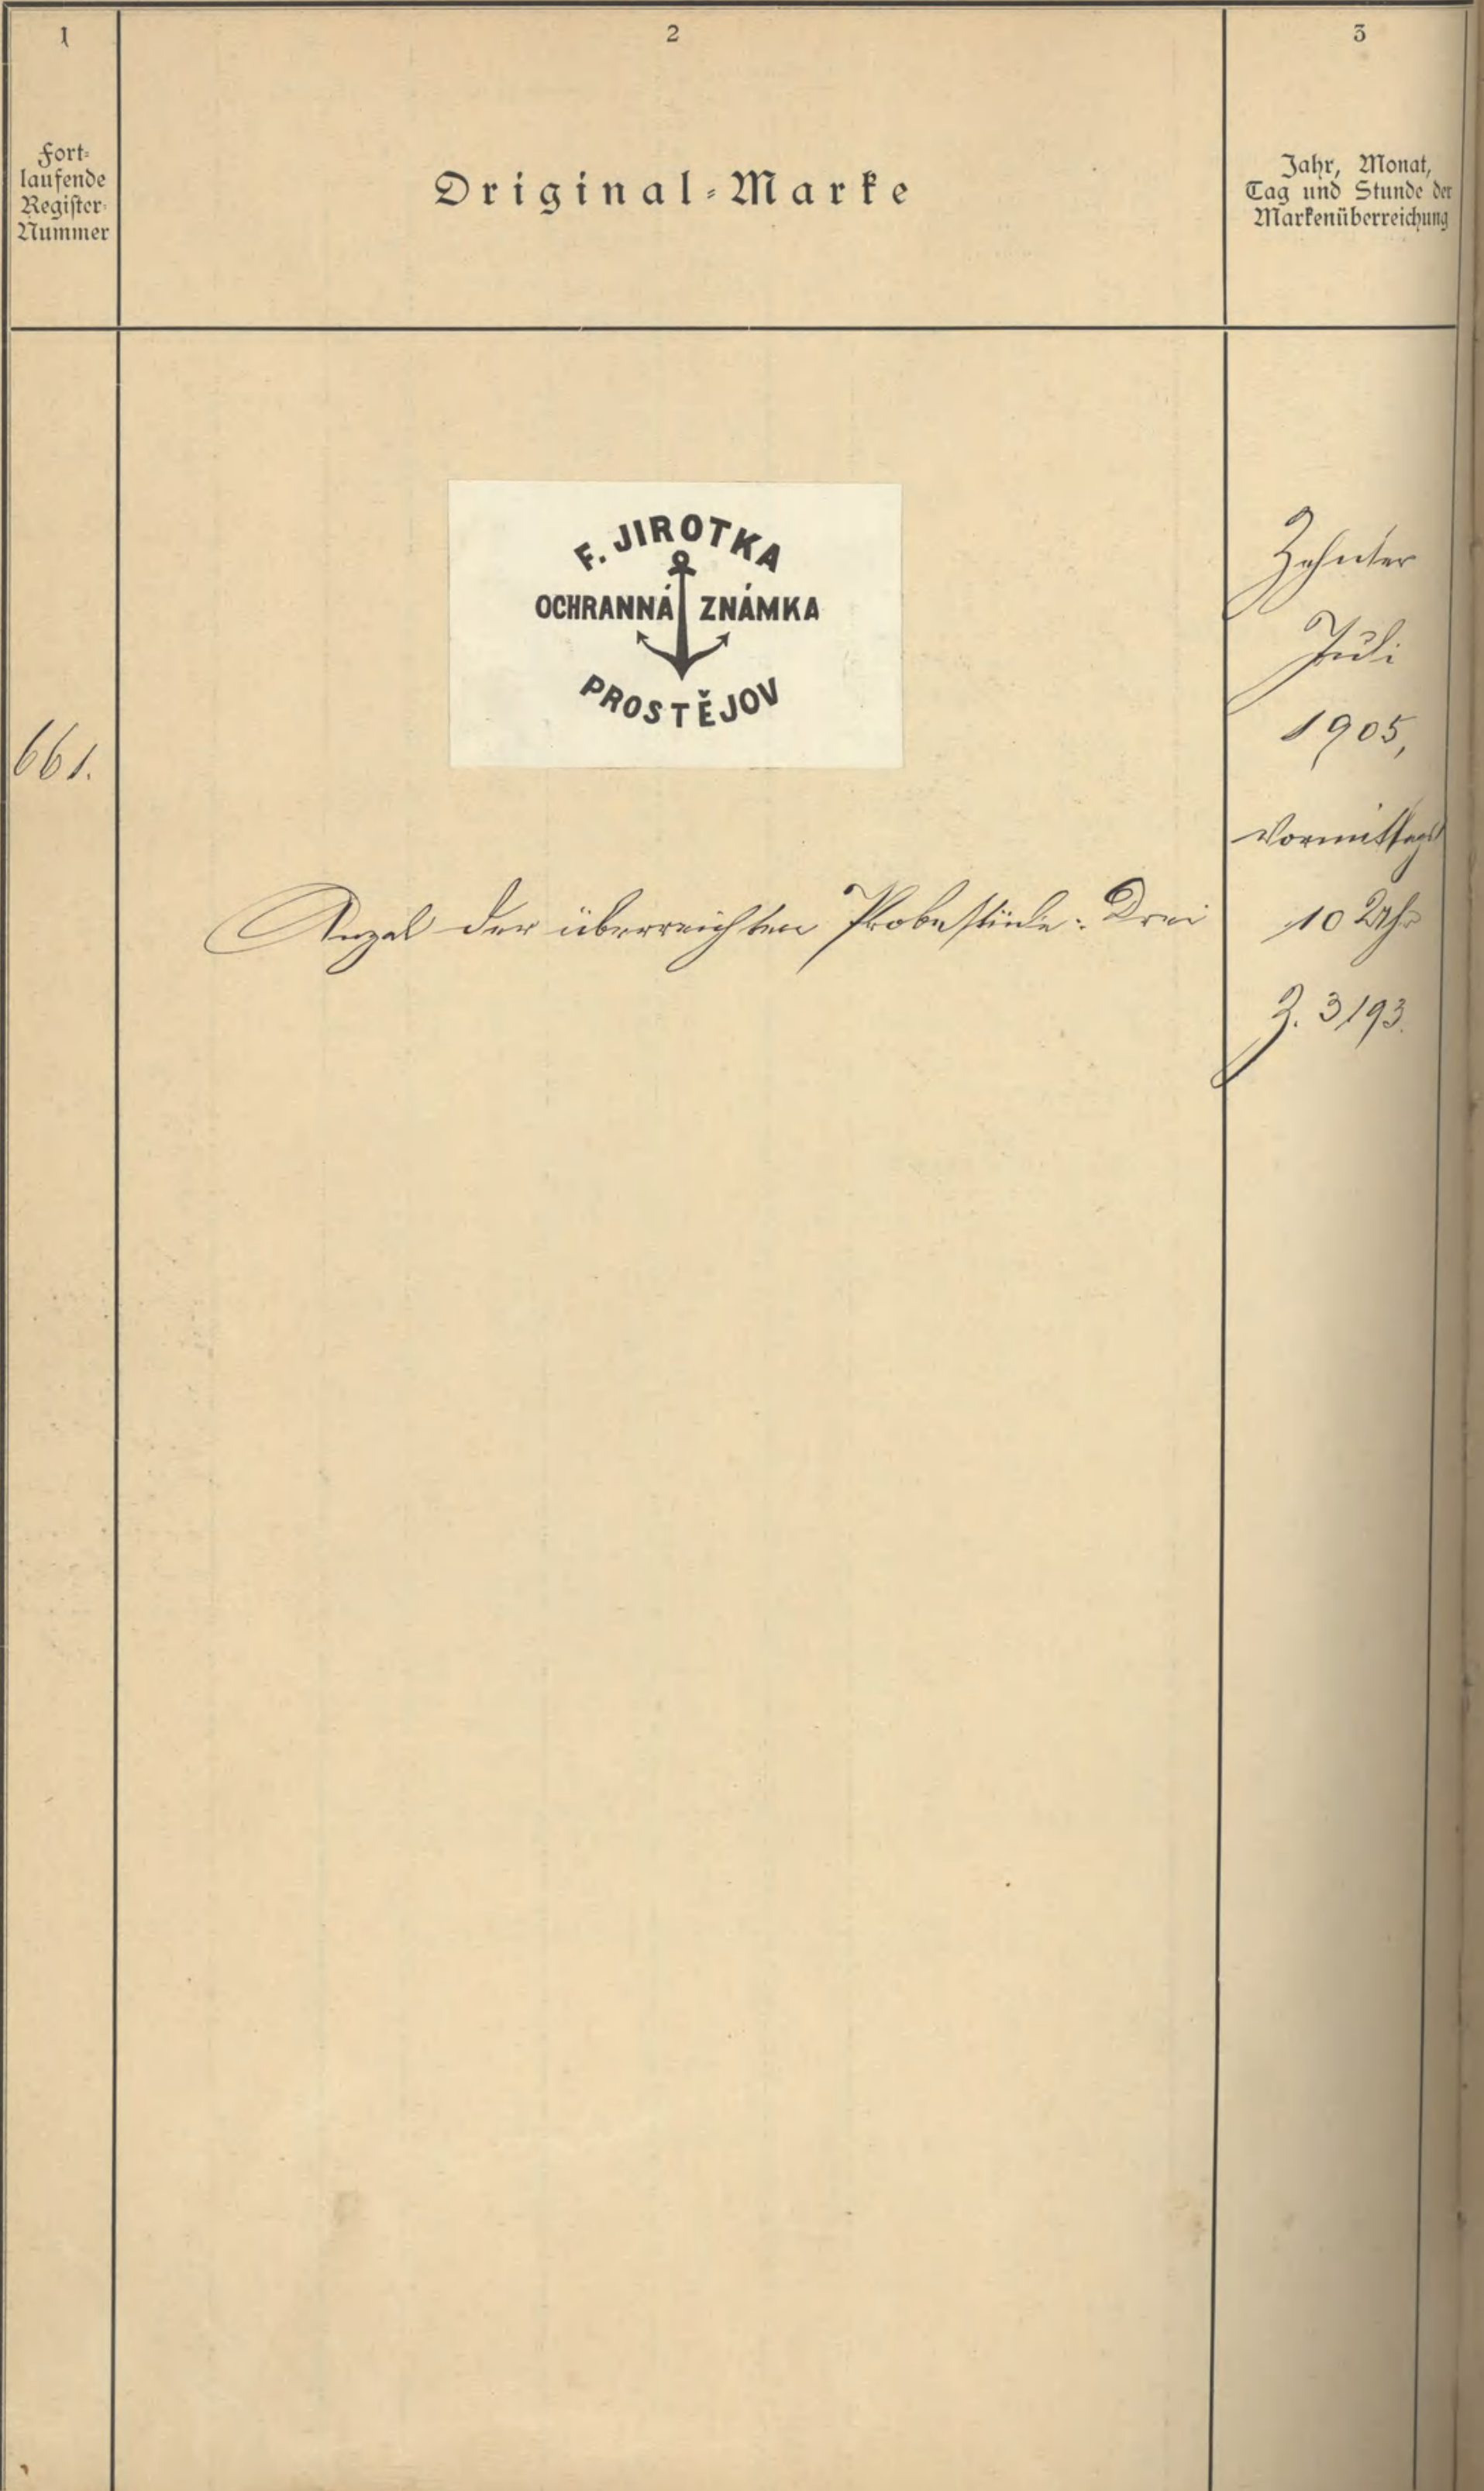 1
2
3
Fort-
laufende
Register-
Nummer
Original-Marke
Jahr, Monat,
Tag und Stunde der
Markenüberreichung
661.
F. JIROTKA
OCHRANNÁ ZNÁMKA
PROSTĚJOV
Anzal der überreichten Probestücke: Drei
Zehnter
Juli
1905,
Vormittags
10 Uhr
Z. 3193.